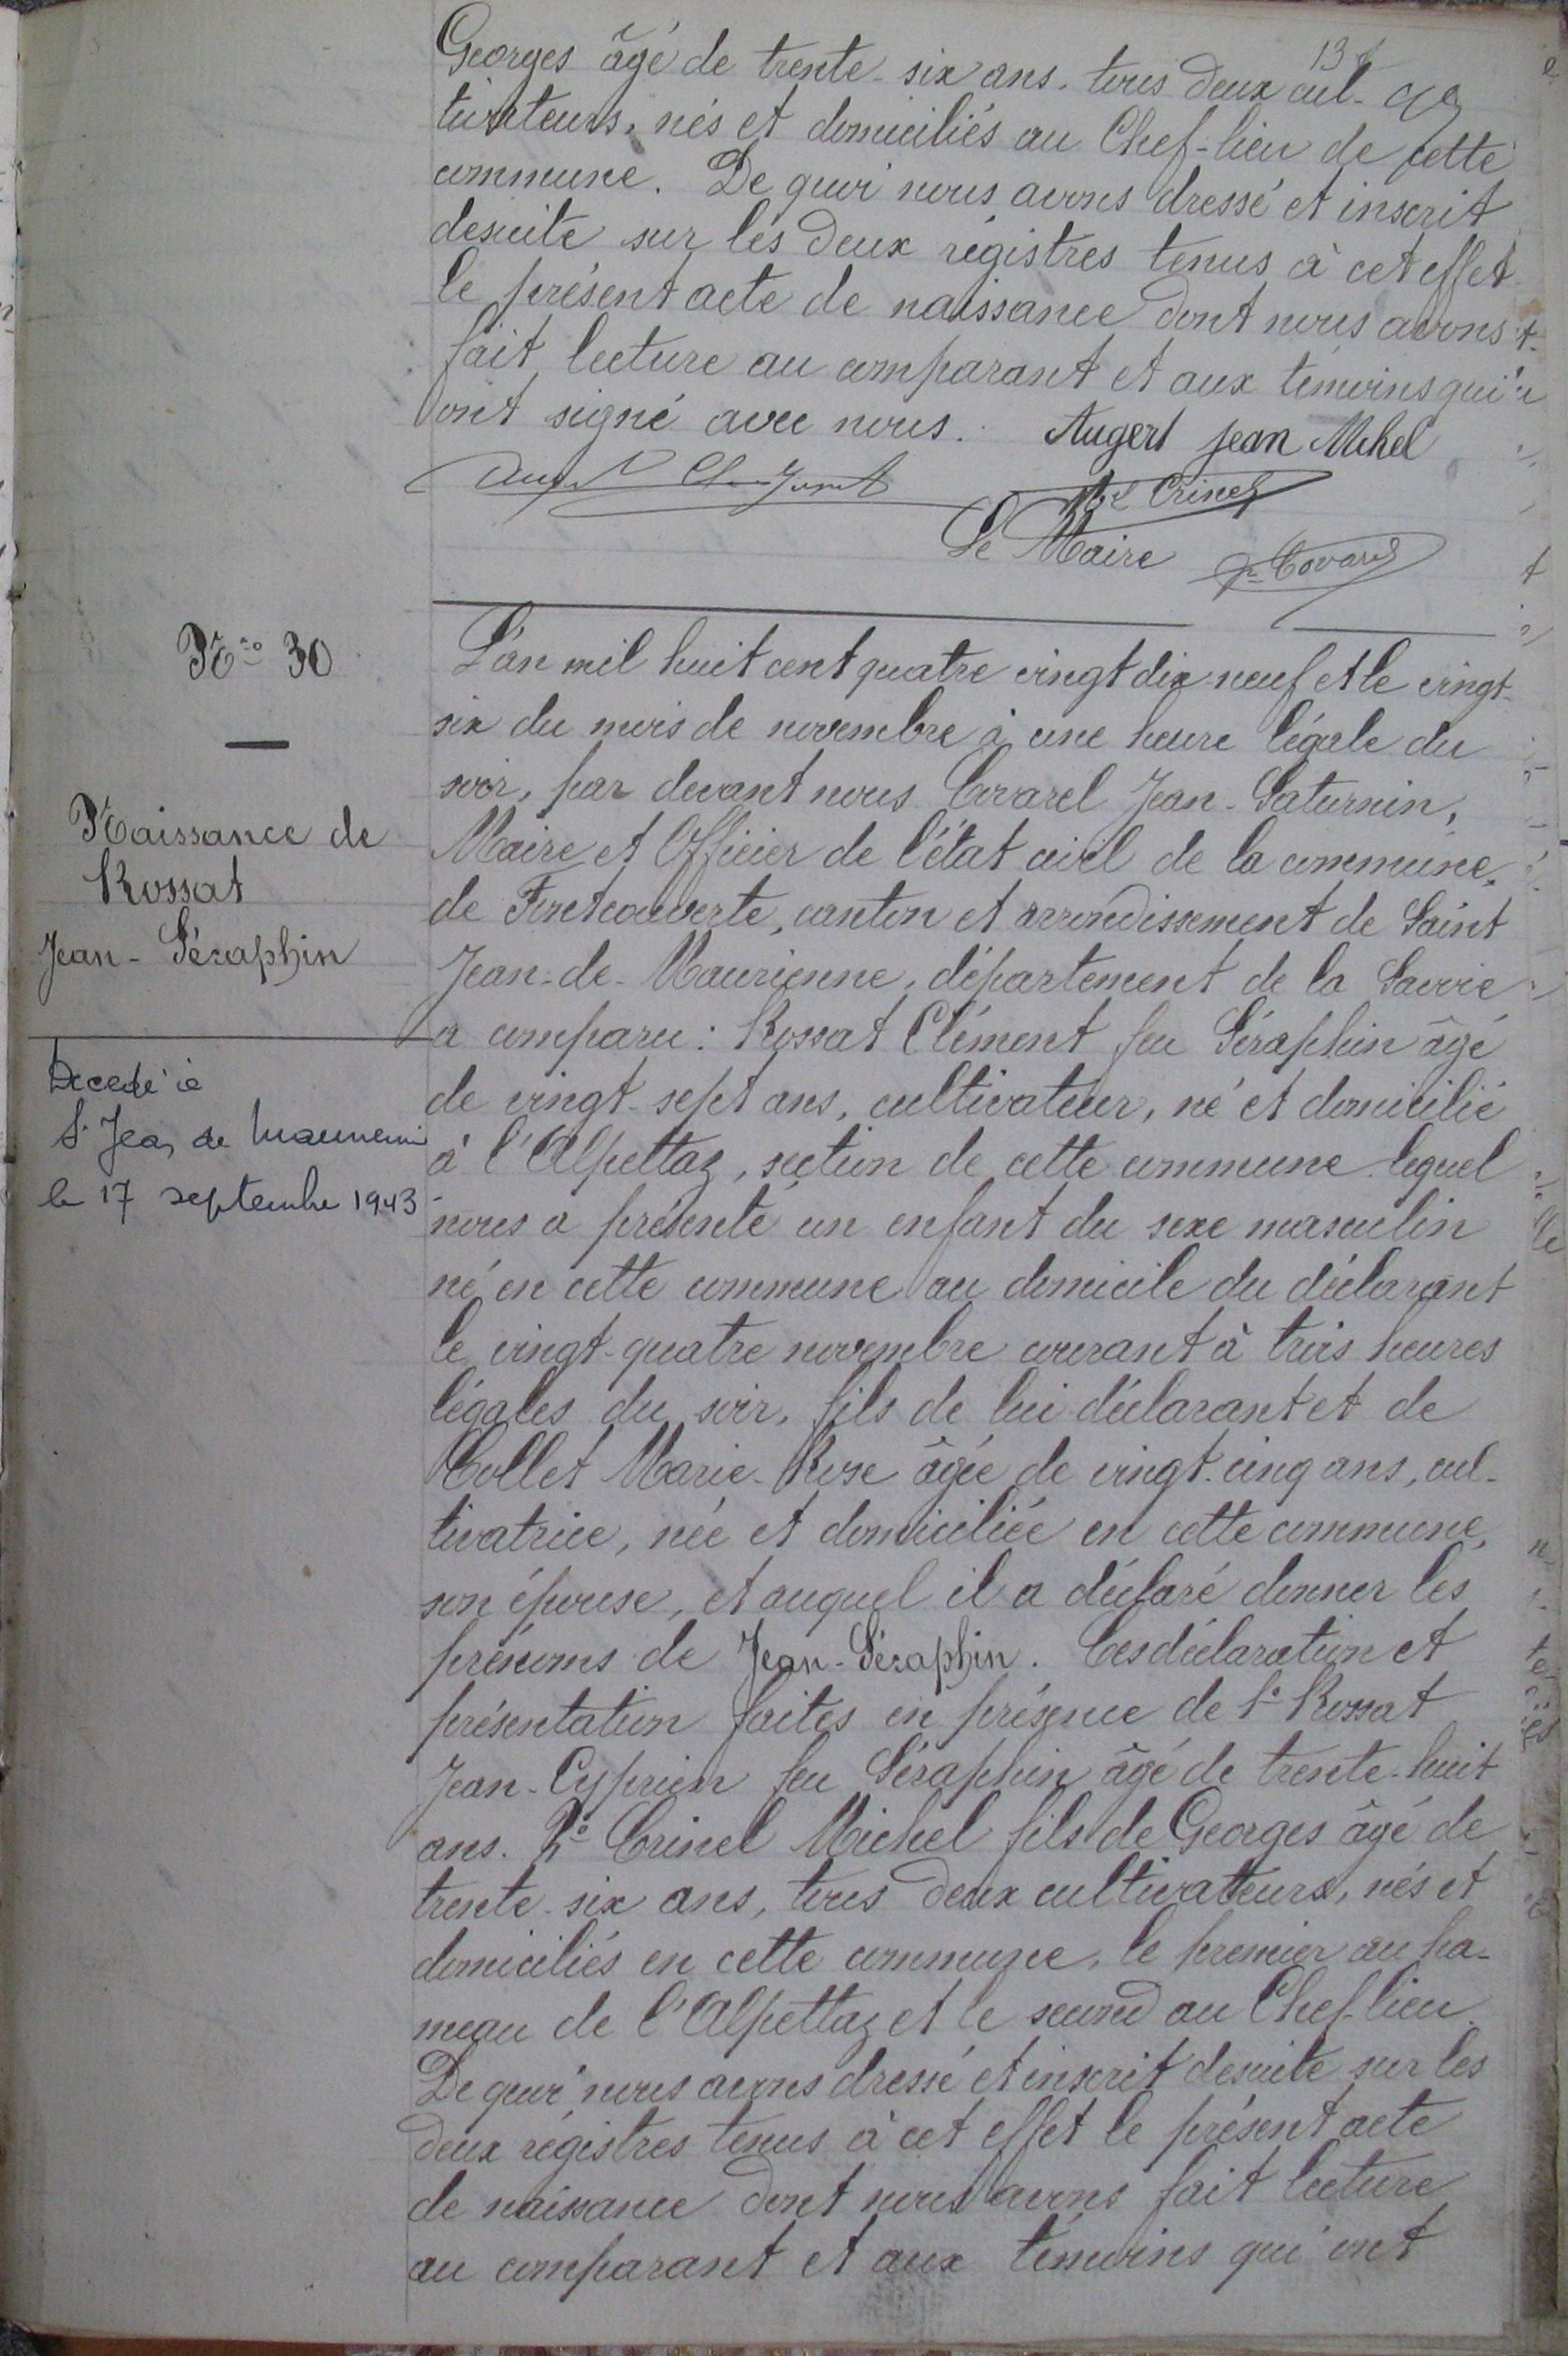 Georges âgé de trente-six ans. tous deux cul-
tivateurs, nés et domiciliés au Chef-lieu de cette
commune. De quoi nous avons dressé et inscrit
desuite sur les deux régistres tenus à cet effet
le présent acte de naissance dont nous avons
fait lecture au comparant et aux témoins qui
ont signé avec nous. Augert Jean Michel
Crinel
Le Maire Covarel
No 30
Naissance de
Rossat
Jean-Séraphin
Décédé à
St Jean de Maurienne
le 17 septembre 1943
L'an mil huit cent quatre vingt dix-neuf et le vingt-
six du mois de novembre à une heure légale du
soir, par devant nous Covarel Jean-Saturnin,
Maire et Officier de l'état civil de la commune
de Fontcouverte, canton et arrondissement de Saint
Jean-de-Maurienne, département de la Savoie
a comparu : Rossat Clément feu Séraphin âgé
de vingt-sept ans, cultivateur, né et domicilié
à l'Alpettaz, section de cette commune lequel
nous a présenté un enfant du sexe masculin
né en cette commune au domicile du déclarant
le vingt-quatre novembre courant à trois heures
légales du soir, fils de lui déclarant et de
Collet Marie-Rose âgée de vingt-cinq ans, cul-
tivatrice, née et domiciliée en cette commune,
son épouse, et auquel il a déclaré donner les
prénoms de Jean-Séraphin. Ces déclaration et
présentation faites en présence de 1° Rossat
Jean-Cyprien feu Séraphin âgé de trente-huit
ans. 2° Crinel Michel fils de Georges âgé de
trente-six ans, tous deux cultivateurs, nés et
domiciliés en cette commune, le premier au ha-
meau de l'Alpettaz et le second au Chef-lieu.
De quoi nous avons dressé et inscrit desuite sur les
deux régistres tenus à cet effet le présent acte
de naissance dont nous avons fait lecture
au comparant et aux témoins qui ont